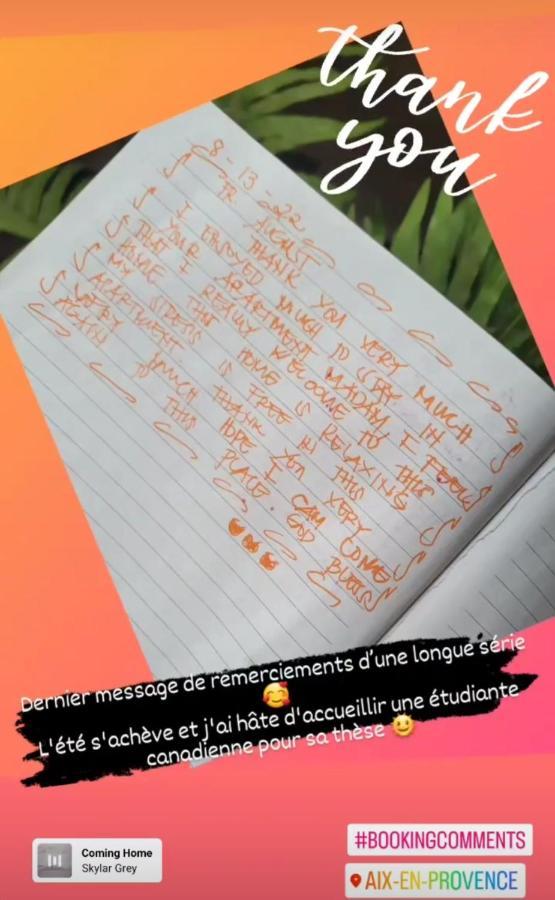 thank
you
8 - 13 - 22
AUGUST
THANK YOU VERY MUCH
I ENJOYED MUCH TO STAY IN
YOUR APARTMENT MADAM I FEEL
THAT I REALLY WELCOME TO THIS
HOME THIS HOME IS RELAXING
MY STRESS IS FREE IN THIS
APARTMENT THANK YOU VERY
VERY MUCH HOPE I CAN COME
AGAIN TO THIS PLACE. GOD BLESS
Dernier message de remerciements d'une longue série
🥰
L'été s'achève et j'ai hâte d'accueillir une étudiante
canadienne pour sa thèse 🙂
Coming Home
Skylar Grey
#BOOKINGCOMMENTS
AIX-EN-PROVENCE